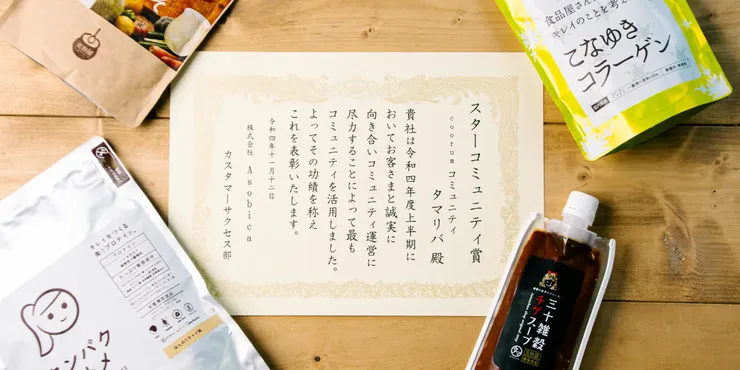 スターコミュニティ賞
coorum コミュニティ
タマリバ 殿
貴社は令和四年度上半期に
おいてお客さまと誠実に
向き合いコミュニティ運営に
尽力することによって最も
コミュニティを活用しました。
よってその功績を称え
これを表彰いたします。
令和四年十一月十二日
株式会社 Asobica
カスタマーサクセス部
食品屋さん
キレイのことを考え
こなゆき
コラーゲン
キレイをつくる
美・プロテイン。
プロテイン
ンパク
メ
三十雑穀
チゲスープ